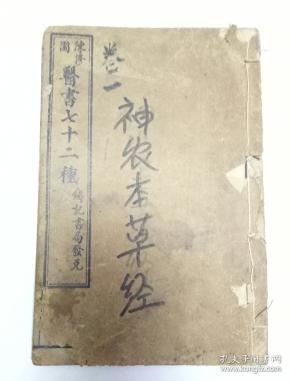 卷一
神农本草经
陳修園
醫書七十二種
書局發兌
孔夫子旧书网